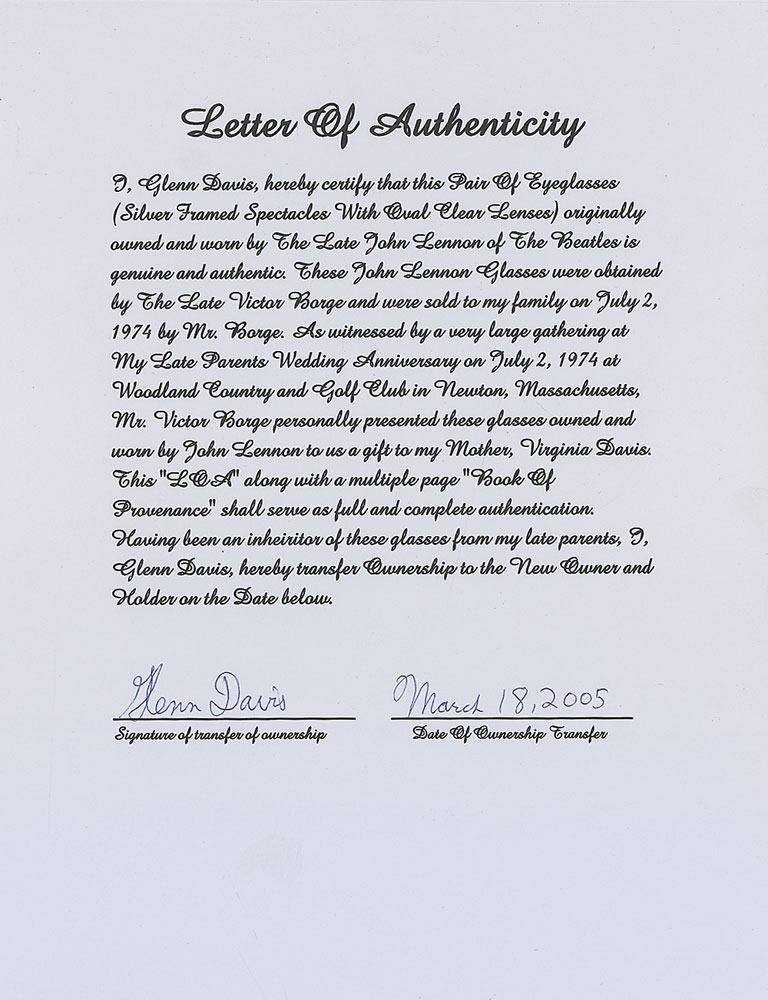 Letter Of Authenticity
I, Glenn Davis, hereby certify that this Pair Of Eyeglasses
(Silver Framed Spectacles With Oval Clear Lenses) originally
owned and worn by The Late John Lennon of The Beatles is
genuine and authentic. These John Lennon Glasses were obtained
by The Late Victor Borge and were sold to my family on July 2,
1974 by Mr. Borge. As witnessed by a very large gathering at
My Late Parents Wedding Anniversary on July 2, 1974 at
Woodland Country and Golf Club in Newton, Massachusetts,
Mr. Victor Borge personally presented these glasses owned and
worn by John Lennon to us a gift to my Mother, Virginia Davis.
This "LOA" along with a multiple page "Book Of
Provenance" shall serve as full and complete authentication.
Having been an inheiritor of these glasses from my late parents, I,
Glenn Davis, hereby transfer Ownership to the New Owner and
Holder on the Date below.
Glenn Davis March 18, 2005
Signature of transfer of ownership Date Of Ownership Transfer